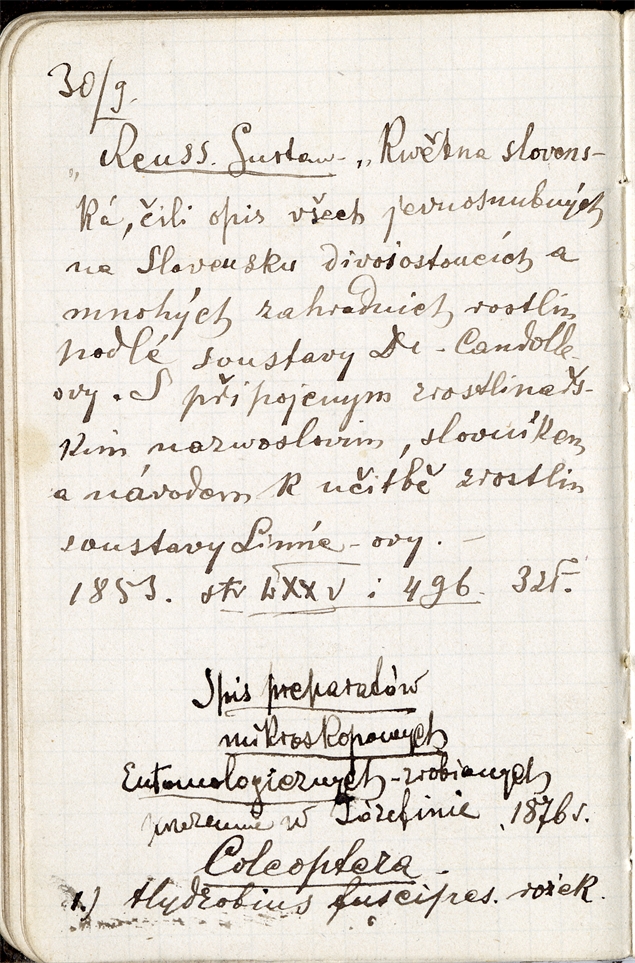 30/9.
„Reuss. Gustaw - „Kwětna slovens-
ká, čili opis všech jevnosnubných
na Slovensku divoiostoucích a
mnohých zahradnich rostlin
podlé soustavy De-Candolle-
ovy. S připojenym zrostlinařs-
kim nazwoslovim, slovníkem
a návodem k učitbě zrostlin
soustavy Linnée-ovy. -
1853. str LXXV i 496.
Spis preparatów
mikroskopowych
Entomologicznych - zrobionych
przezemnie w Józefinie 1876 r.
Coleoptera.
1.) Hydrobius fuscipes. rożek.